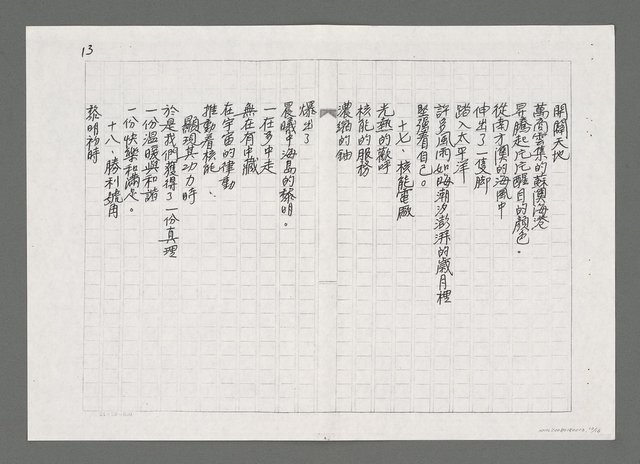 13
開闢天地
萬商雲集的蘇澳海港
昇騰起定定醒目的顏色。
從南方澳的海風中
伸出了一隻脚
踏入太平洋
許多風雨如晦潮汐澎湃的歲月裡
堅強着自己。
十七、核能電厰
光熱的歡呼
核能的服務
濃縮的鈾
爆出了
晨曦中海島的黎明。
一在多中走
無在有中藏
在宇宙的律動
推動着核能
顯現其功力時
於是我們獲得了一份真理
一份溫暖與和諧
一份快樂和滿足。
十八、勝利號角
黎明初時